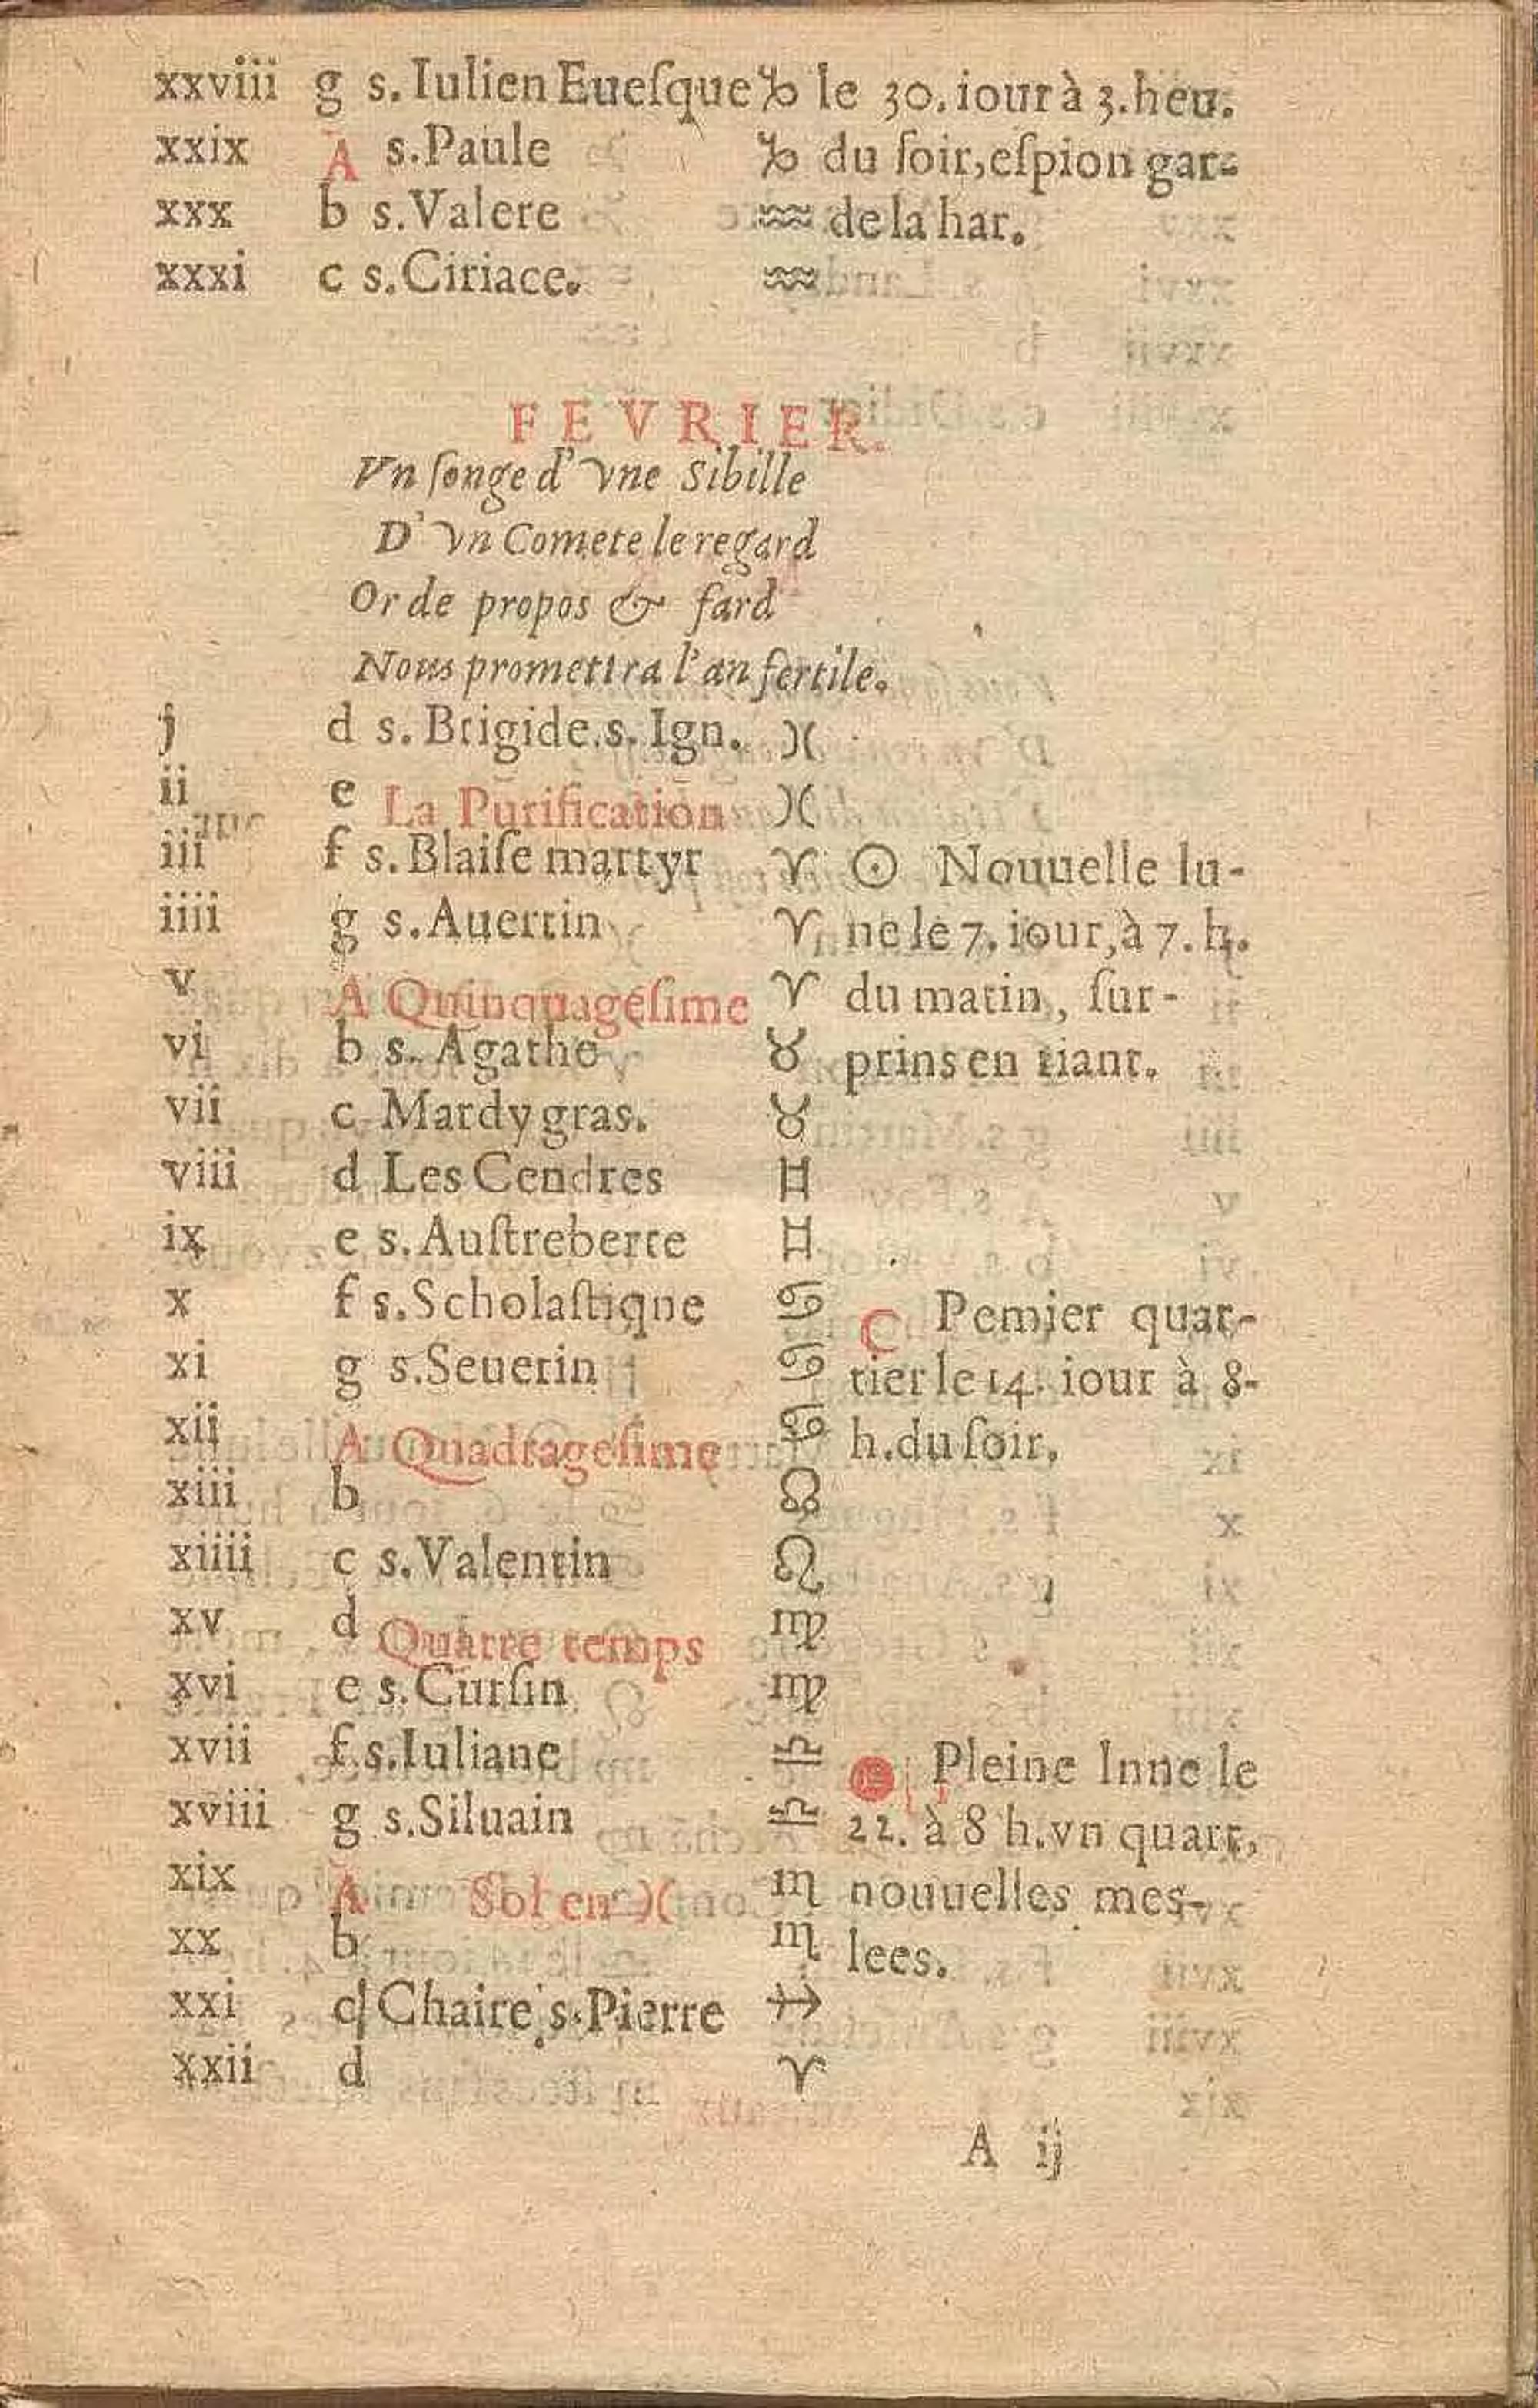 xxviii g s. Iulien Eueſque ♑ le 30. iour à 3. heu.
xxix A s. Paule ♑ du ſoir, eſpion gar-
xxx b s. Valere ♒ de la har.
xxxi c s. Ciriace. ♒
FEVRIER.
Vn ſonge d'vne Sibille
D'vn Comete le regard
Or de propos & fard
Nous promettra l'an fertile.
j d s. Brigide. s. Ign. ♓
ii e La Purification ♓
iii f s. Blaiſe martyr ♈ ☉ Nouuelle lu-
iiii g s. Auertin ♈ ne le 7. iour, à 7. h.
v A Quinquageſime ♈ du matin, ſur-
vi b s. Agathe ♉ prins en riant.
vii c Mardy gras. ♉
viii d Les Cendres ♊
ix e s. Auſtreberte ♊
x f s. Scholaſtique ♋ ☾ Pemier quar-
xi g s. Seuerin ♋ tier le 14. iour à 8-
xii A Quadrageſime ♋ h. du ſoir.
xiii b ♌
xiiii c s. Valentin ♌
xv d Quatre temps ♍
xvi e s. Curſin ♍
xvii f s. Iuliane ♎ Pleine lnne le
xviii g s. Siluain ♎ 22. à 8 h. vn quart,
xix A Sol en ♓ ♏ nouuelles mes-
xx b ♏ lees.
xxi c Chaire s. Pierre ♐
xxii d ♈
A ij